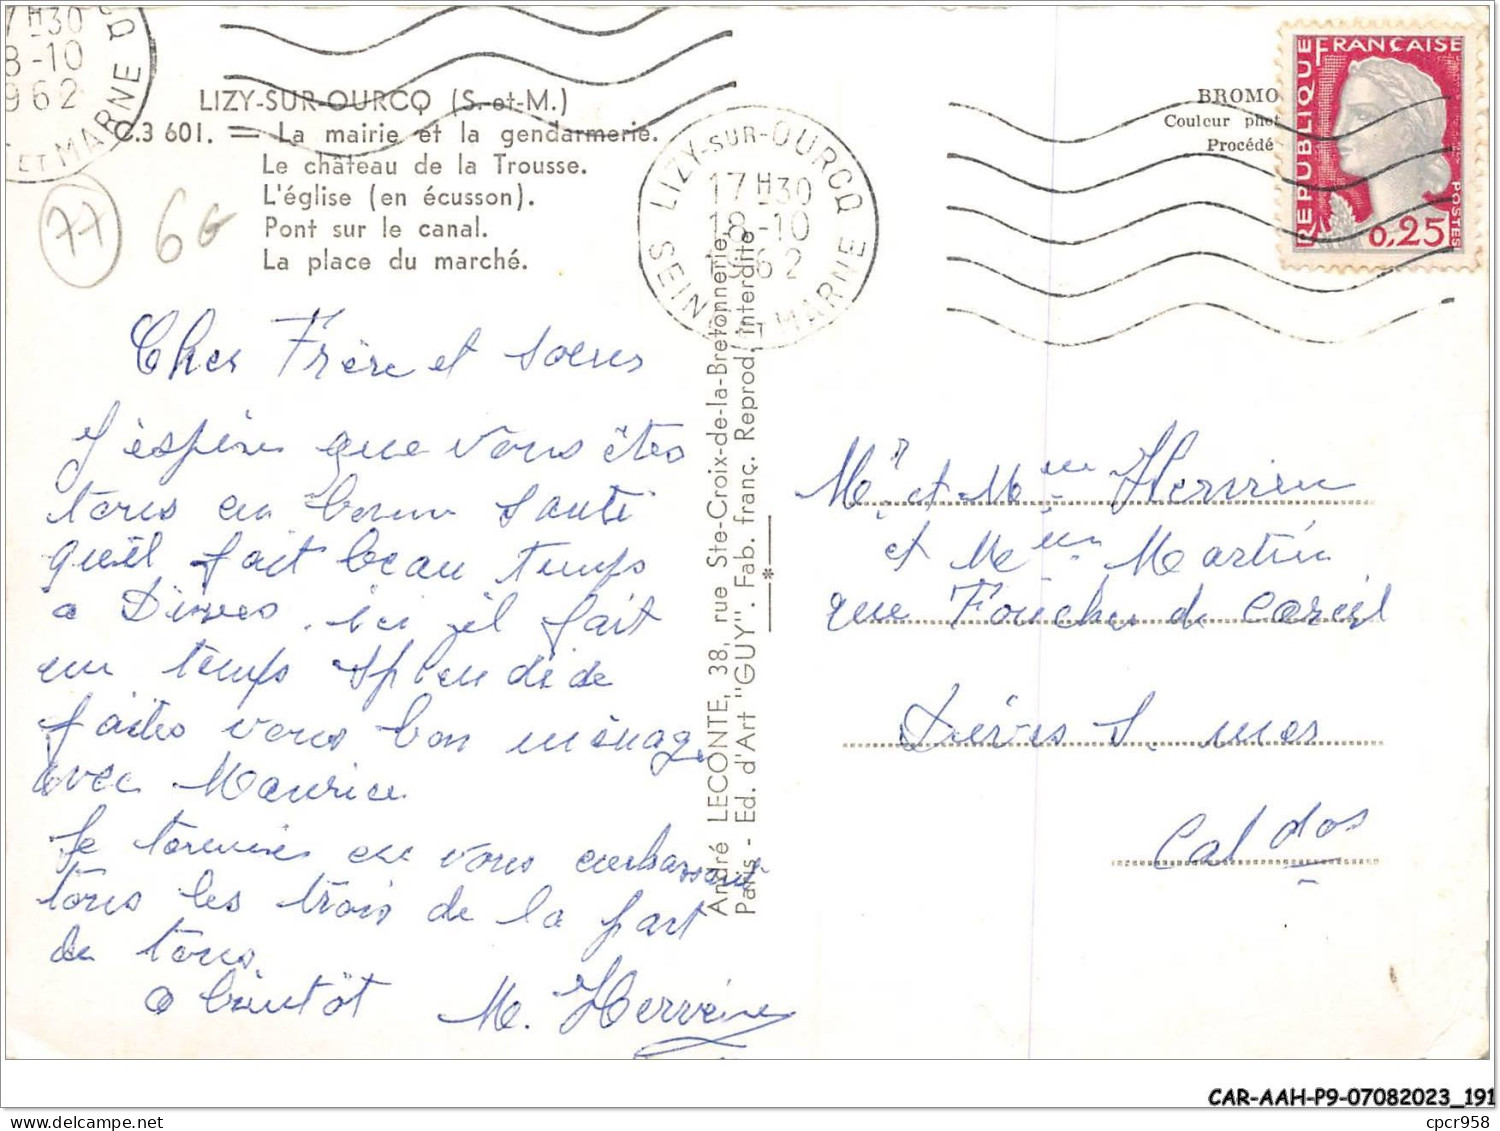 17H30
18-10
1962
ET MARNE
LIZY-SUR-OURCQ (S.-et-M.)
C.3 601. = La mairie et la gendarmerie.
Le château de la Trousse.
L'église (en écusson).
Pont sur le canal.
La place du marché.
77
6
LIZY-SUR-OURCQ
17H30
18-10
1962
SEINE ET MARNE
BROMO
Couleur phot
Procédé
REPUBLIQUE FRANÇAISE
POSTES
0,25
Cher Frère et soeurs
J'éspère que vous êtes
tous en bonne santé
qu'il fait beau temps
a Dives. ici il fait
un temps splendide
faites vous bon ménage
avec Maurice
Je termine en vous embrassant
tous les trois de la part
de tous
a bientôt M. Hervieu
André LECONTE, 38, rue Ste-Croix-de-la-Bretonnerie
Paris - Ed. d'Art "GUY". Fab. franç. Reprod. interdite
Mr et Mme Hervieu
et Mme Martin
rue Foucher de Careil
Dives s. mer
Calvados
CAR-AAH-P9-07082023_191
cpcr958